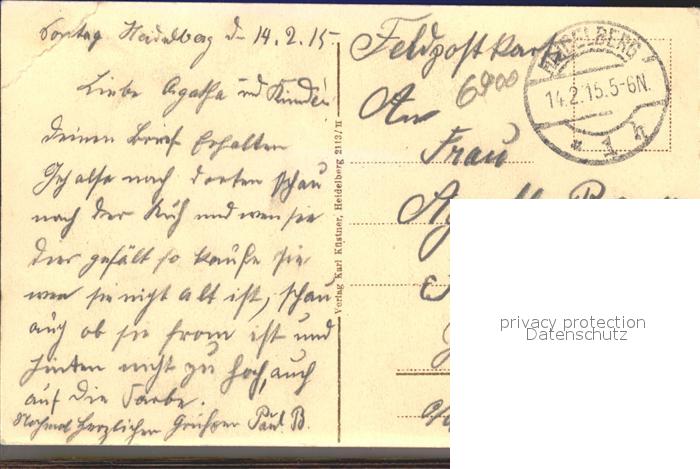 Sontag Heidelberg d 14.2.15
Liebe Agatha und Kinder
deinen Brief Erhalten
Geh also nach dorten schau
nach der Küh und wen sie
dier gefält so kaufe sie
wen sie nicht alt ist, schau
auch ob sie from ist und
hinten nicht zu hoch, auch
auf die Farbe.
Nochmal herzlichen Grüßen Paul B.
Verlag Karl Küstner, Heidelberg 2113/II
Feldpostkarte
6900
An
Frau
HEIDELBERG
14.2.15.5-6N.
* 1 h
privacy protection
Datenschutz